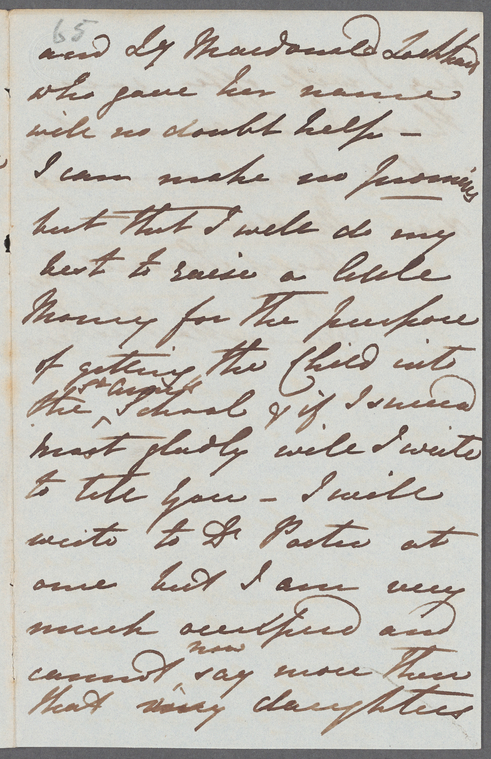 65
and Ly Macdonald Lockhart
who gave her name
will no doubt help –
I can make no promises
but that I will do my
best to raise a little
Money for the purpose
of getting the Child into
the School & if I succeed
most gladly will I write
to tell you – I will
write to Dr Porter at
once but I am very
much occupied and
cannot now say more than
that my daughters